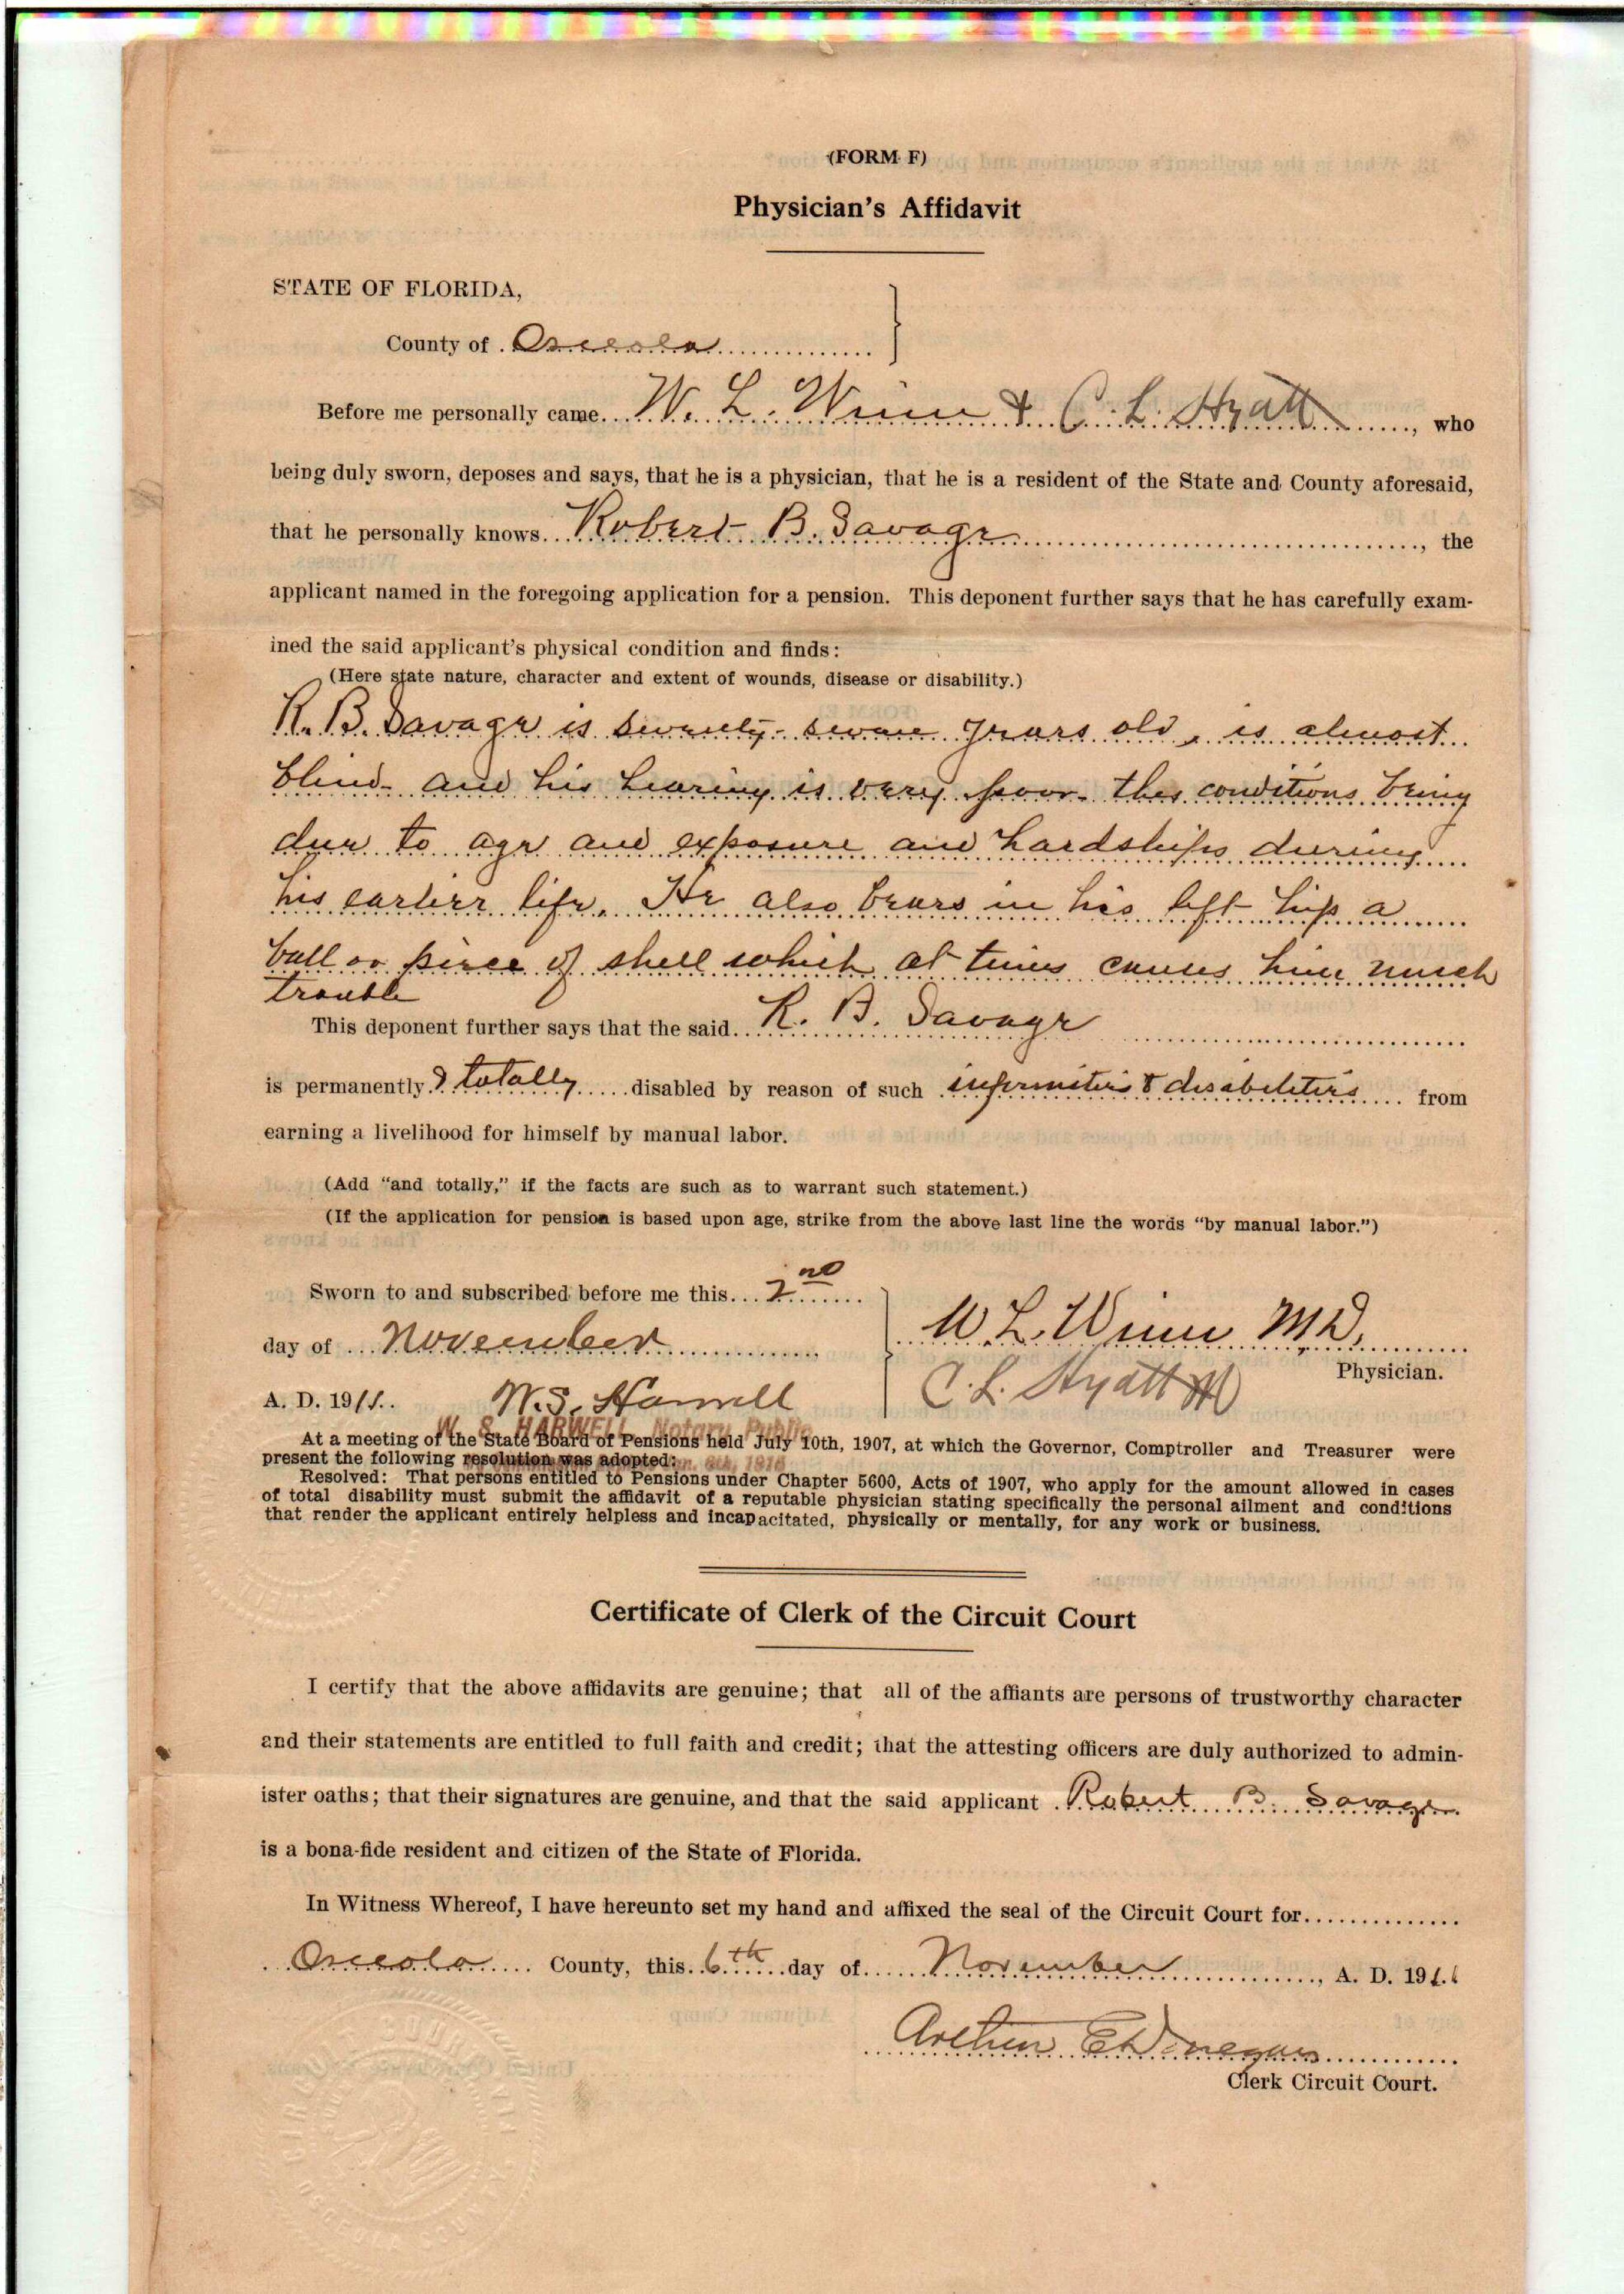 (FORM F)
Physician's Affidavit
STATE OF FLORIDA,
County of Osceola
Before me personally came W. L. Winn & C. L. Hyatt, who
being duly sworn, deposes and says, that he is a physician, that he is a resident of the State and County aforesaid,
that he personally knows Robert B. Savage, the
applicant named in the foregoing application for a pension. This deponent further says that he has carefully exam-
ined the said applicant's physical condition and finds:
(Here state nature, character and extent of wounds, disease or disability.)
R. B. Savage is seventy-seven years old, is almost
blind and his hearing is very poor thes conditions being
due to age and exposure and hardships during
his earlier life. He also bears in his left hip a
ball or piece of shell which at times causes him much
trouble
This deponent further says that the said R. B. Savage
is permanently & totally disabled by reason of such infirmities & disabilities from
earning a livelihood for himself by manual labor.
(Add "and totally," if the facts are such as to warrant such statement.)
(If the application for pension is based upon age, strike from the above last line the words "by manual labor.")
Sworn to and subscribed before me this 2nd
day of November
W. L. Winn M.D.
Physician.
A. D. 1911.
W. S. Harwell
C. L. Hyatt MD
W. S. HARWELL, Notary Public
At a meeting of the State Board of Pensions held July 10th, 1907, at which the Governor, Comptroller and Treasurer were
present the following resolution was adopted:
Resolved: That persons entitled to Pensions under Chapter 5600, Acts of 1907, who apply for the amount allowed in cases
of total disability must submit the affidavit of a reputable physician stating specifically the personal ailment and conditions
that render the applicant entirely helpless and incapacitated, physically or mentally, for any work or business.
Certificate of Clerk of the Circuit Court
I certify that the above affidavits are genuine; that all of the affiants are persons of trustworthy character
and their statements are entitled to full faith and credit; that the attesting officers are duly authorized to admin-
ister oaths; that their signatures are genuine, and that the said applicant Robert B. Savage
is a bona-fide resident and citizen of the State of Florida.
In Witness Whereof, I have hereunto set my hand and affixed the seal of the Circuit Court for
Osceola County, this 6th day of November, A. D. 1911
Arthur E Donegan
Clerk Circuit Court.